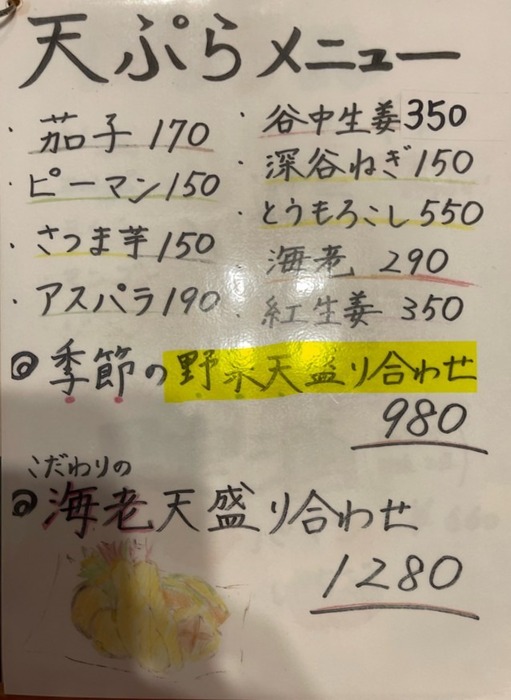 天ぷらメニュー
・茄子 170
・ピーマン 150
・さつま芋 150
・アスパラ 190
・谷中生姜 350
・深谷ねぎ 150
・とうもろこし 550
・海老 290
・紅生姜 350
◎季節の野菜天盛り合わせ
980
こだわりの
◎海老天盛り合わせ
1280